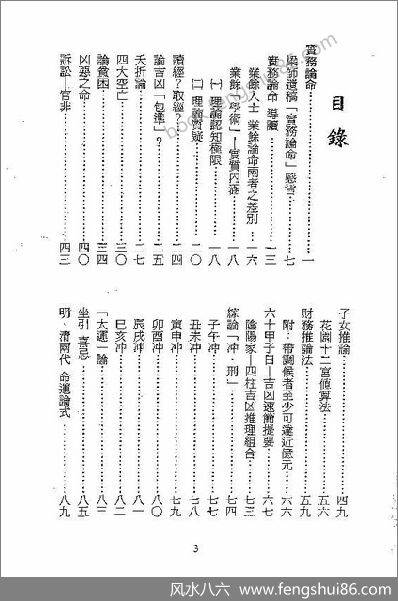 目錄
實務論命……一
梁師遺稿「實務論命」懸言……七
實務論命 導讀……一三
業餘人士 業餘論命兩者之差別…一六
業餘「學術」—實質內涵……一八
㈠ 理論認知極限……一八
㈡ 理論實疑……二〇
讀經?取經?……二四
論吉凶「包準」?……二五
夭折論……二七
四大空亡……三〇
論貧困……三四
凶惡之命……四〇
訴訟—官非……四三
子女推論……四九
花園十二宮値算法……五六
財務推論法……五九
附:帶調候者至少可達近億元…六六
六十甲子日—吉凶速簡提要…六七
陰陽家—四柱吉凶推理組合…七三
綜論「沖·刑」……七四
子午沖……七六
丑未沖……七八
寅申沖……七九
卯酉沖……八〇
辰戌沖……八一
巳亥沖……八二
「大運」論……八四
坐引 喜忌……八五
明、清兩代 命運論式……八九
3
风水八六:www.fengshui86.com